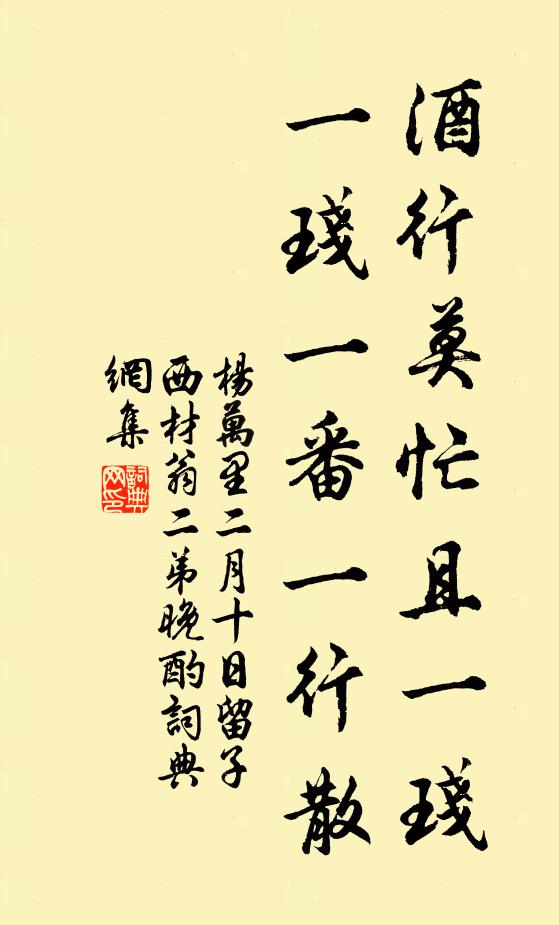 酒行莫忙且一琖
一琖一番一行散
楊萬里二月十日留子
西材翁二弟晚酌詞典
網集
詞典
网印